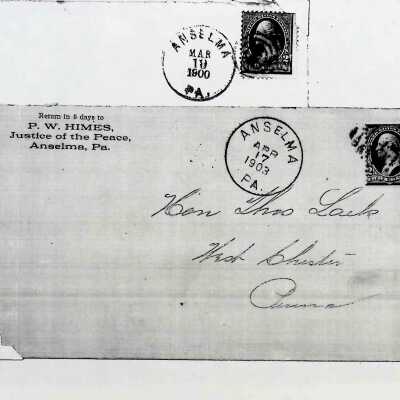 ANSELMA
MAR
19
1900
PA.
2
Return in 5 days to
P. W. HIMES,
Justice of the Peace,
Anselma, Pa.
ANSELMA
APR
17
1903
PA.
Hon Thos Lack
West Chester
Penna